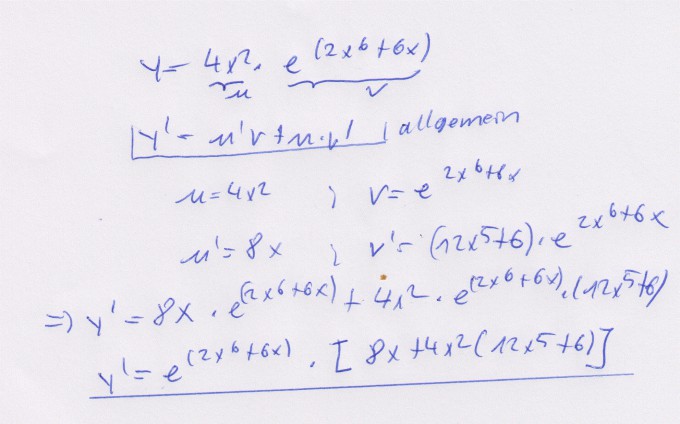 y = 4x² · e^(2x⁶+6x)
u v
y' = u'v + u·v' | allgemein
u = 4x² ; v = e^2x⁶+6x
u' = 8x ; v' = (12x⁵+6) · e^2x⁶+6x
=> y' = 8x · e^(2x⁶+6x) + 4x² · e^(2x⁶+6x) · (12x⁵+6)
y' = e^(2x⁶+6x) · [ 8x+4x² (12x⁵+6)]